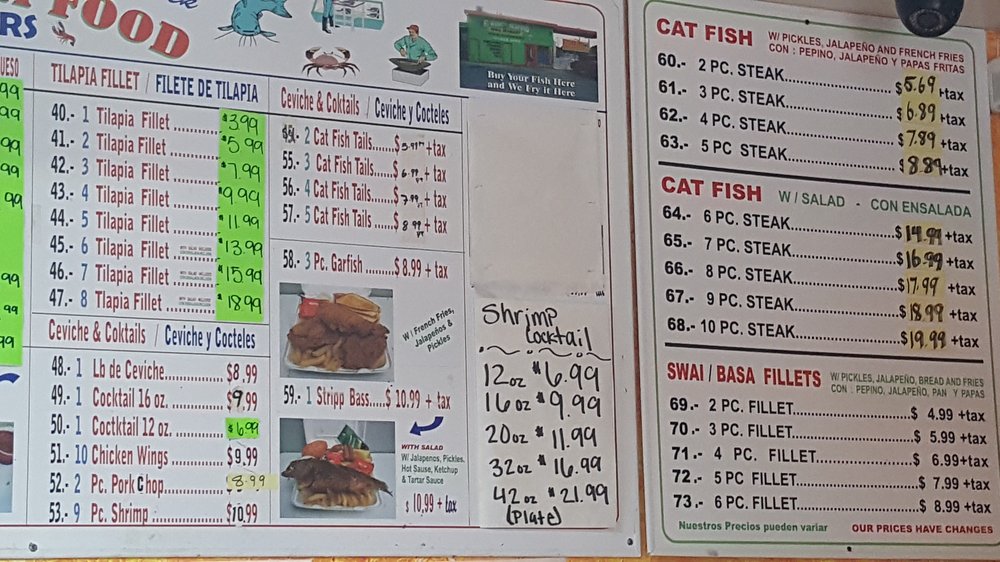 FOOD
ERS
Buy Your Fish Here
and We Fry it Here
UESO
99
99
99
99
99
99
99
TILAPIA FILLET / FILETE DE TILAPIA
40.- 1 Tilapia Fillet ........... $3.99
41.- 2 Tilapia Fillet ........... $5.99
42.- 3 Tilapia Fillet ........... $7.99
43.- 4 Tilapia Fillet ........... $9.99
44.- 5 Tilapia Fillet ........... $11.99
45.- 6 Tilapia Fillet $13.99
46.- 7 Tilapia Fillet $15.99
47.- 8 Tlapia Fillet $18.99
Ceviche & Coktails / Ceviche y Cocteles
48.- 1 Lb de Ceviche.............. $8.99
49.- 1 Cocktail 16 oz. ............ $9.99
50.- 1 Coctktail 12 oz. ........... $6.99
51.- 10 Chicken Wings ........... $9.99
52.- 2 Pc. Pork Chop ............ 8.99
53.- 9 Pc. Shrimp ................ $10.99
Ceviche & Coktails / Ceviche y Cocteles
54.- 2 Cat Fish Tails......$5.99 + tax
55.- 3 Cat Fish Tails......$6.99 + tax
56.- 4 Cat Fish Tails......$7.99 + tax
57.- 5 Cat Fish Tails......$8.99 + tax
58.- 3 Pc. Garfish ........$8.99 + tax
W/ French Fries,
Jalapeños &
Pickles
59.- 1 Stripp Bass....$ 10.99 + tax
WITH SALAD
W/ Jalapenos, Pickles,
Hot Sause, Ketchup
& Tartar Sauce
$ 10,99 + tax
Shrimp
Cocktail
12oz $6.99
16oz $9.99
20oz $11.99
32oz $16.99
42oz $21.99
(Plate)
CAT FISH W/ PICKLES, JALAPEÑO AND FRENCH FRIES
CON : PEPINO, JALAPEÑO Y PAPAS FRITAS
60.- 2 PC. STEAK........................ $5.69+tax
61.- 3 PC. STEAK........................ $6.89+tax
62.- 4 PC. STEAK........................ $7.89+tax
63.- 5 PC STEAK........................ $8.89+tax
CAT FISH W / SALAD - CON ENSALADA
64.- 6 PC. STEAK........................ $14.99+tax
65.- 7 PC. STEAK........................ $16.99+tax
66.- 8 PC. STEAK........................ $17.99 +tax
67.- 9 PC. STEAK........................ $18.99 +tax
68.- 10 PC. STEAK........................ $19.99 +tax
SWAI / BASA FILLETS W/ PICKLES, JALAPEÑO, BREAD AND FRIES
CON : PEPINO, JALAPEÑO, PAN Y PAPAS
69.- 2 PC. FILLET........................ $ 4.99 +tax
70.- 3 PC. FILLET........................ $ 5.99 +tax
71.- 4 PC. FILLET........................ $ 6.99+tax
72.- 5 PC FILLET........................ $ 7.99 +tax
73.- 6 PC. FILLET........................ $ 8.99 +tax
Nuestros Precios pueden variar OUR PRICES HAVE CHANGES